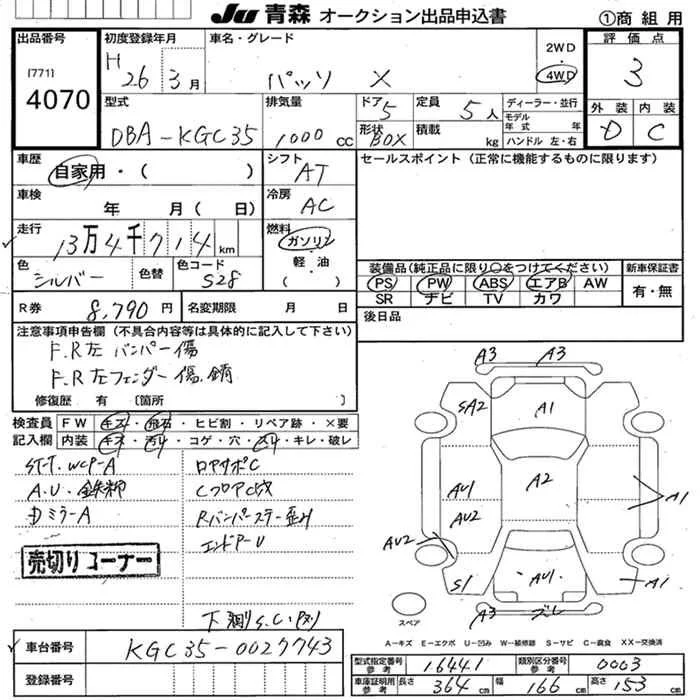 JU 青森 オークション出品申込書 ①商組用
出品番号
[771]
4070
初度登録年月
H 26 3月
車名・グレード
パッソ X
2WD
4WD
評価点
3
外装 内装
D C
型式
DBA-KGC35
排気量
1000 cc
ドア 5
形状 BOX
定員 5人
積載 kg
ディーラー・並行
モデル年式 年
ハンドル 左・右
車歴
自家用・( )
シフト
AT
セールスポイント (正常に機能するものに限ります)
車検
年 月( 日)
冷房
AC
走行
13万4千714km
燃料
ガソリン
軽・油
( )
色
シルバー
色替
色コード
S28
装備品(純正品に限り○をつけてください)
PS PW ABS エアB AW
SR ナビ TV カワ
新車保証書
有・無
R券 8,790円
名変期限 月 日
後日品
注意事項申告欄 (不具合内容等は具体的に記入して下さい)
F.R左バンパー傷
F.R左フェンダー傷.錆
修復歴 有 [箇所 ]
検査員記入欄
FW キズ・飛石・ヒビ割・リペア跡・×要
内装 キズ・汚れ・コゲ・穴・スリ・キレ・破レ
A.U.
ミラーA
Rバンパーステー歪み
売切りコーナー
A3 A3
SA2 A1
A2
AU1
AU2
A1
AU2
S1 AU1 A1
A3 ズレ
スペア
A-キズ E-エクボ U-凹み W-補修跡 S-サビ C-腐食 XX-交換済
車台番号
KGC35-0027743
登録番号
型式指定番号 参考 16441
類別区分番号 参考 0003
車庫証明用 参考 長さ 364 cm 幅 166 cm 高さ 153 cm